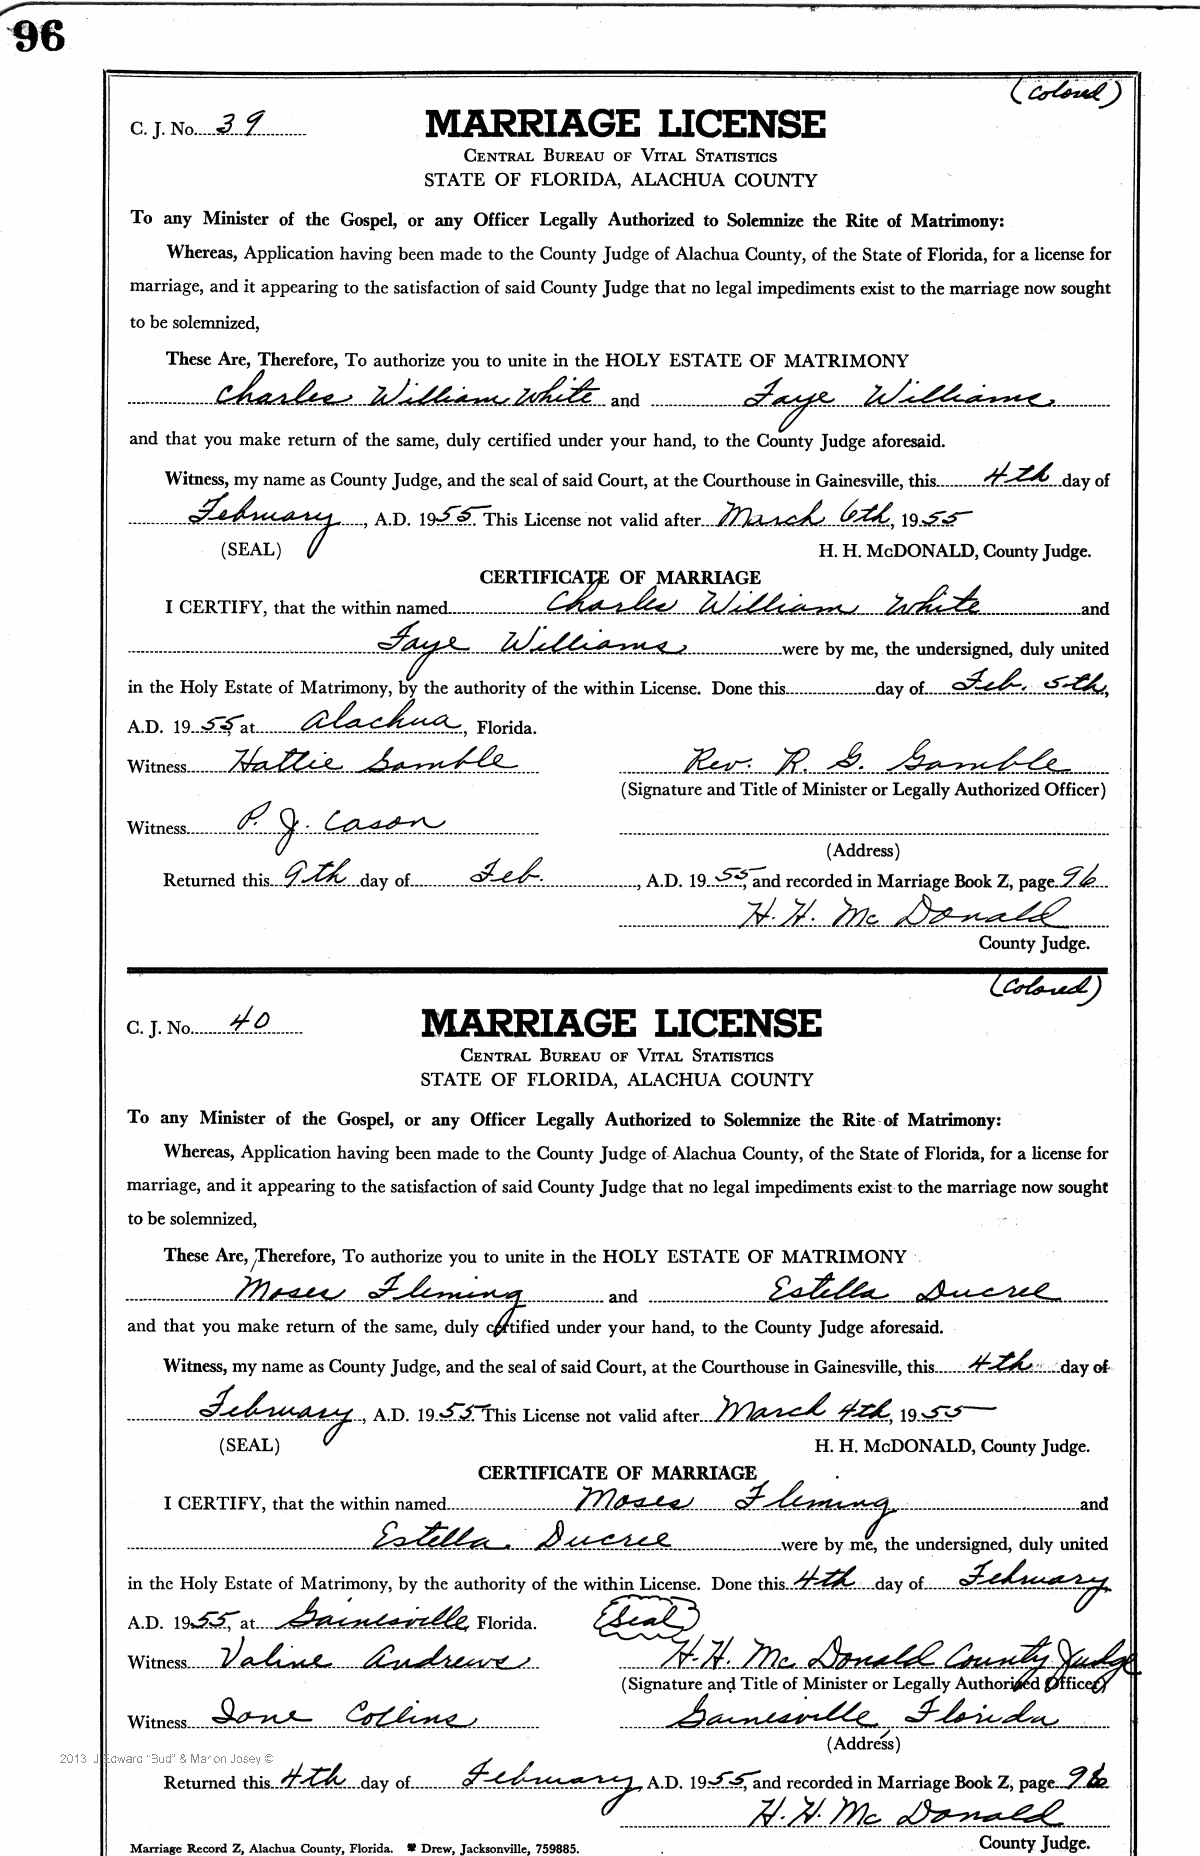 96
(Colored)
C. J. No. 39
MARRIAGE LICENSE
CENTRAL BUREAU OF VITAL STATISTICS
STATE OF FLORIDA, ALACHUA COUNTY
To any Minister of the Gospel, or any Officer Legally Authorized to Solemnize the Rite of Matrimony:
Whereas, Application having been made to the County Judge of Alachua County, of the State of Florida, for a license for
marriage, and it appearing to the satisfaction of said County Judge that no legal impediments exist to the marriage now sought
to be solemnized,
These Are, Therefore, To authorize you to unite in the HOLY ESTATE OF MATRIMONY
Charles William White and Faye Williams
and that you make return of the same, duly certified under your hand, to the County Judge aforesaid.
Witness, my name as County Judge, and the seal of said Court, at the Courthouse in Gainesville, this 4th day of
February, A.D. 1955. This License not valid after March 6th, 1955
(SEAL) H. H. McDONALD, County Judge.
CERTIFICATE OF MARRIAGE
I CERTIFY, that the within named Charles William White and
Faye Williams were by me, the undersigned, duly united
in the Holy Estate of Matrimony, by the authority of the within License. Done this day of Feb. 5th,
A.D. 1955, at Alachua, Florida.
Witness Hattie Gamble Rev. R. G. Gamble
(Signature and Title of Minister or Legally Authorized Officer)
Witness P. J. Cason
(Address)
Returned this 9th day of Feb. , A.D. 1955, and recorded in Marriage Book Z, page 96
H. H. McDonald
County Judge.
(Colored)
C. J. No. 40
MARRIAGE LICENSE
CENTRAL BUREAU OF VITAL STATISTICS
STATE OF FLORIDA, ALACHUA COUNTY
To any Minister of the Gospel, or any Officer Legally Authorized to Solemnize the Rite of Matrimony:
Whereas, Application having been made to the County Judge of Alachua County, of the State of Florida, for a license for
marriage, and it appearing to the satisfaction of said County Judge that no legal impediments exist to the marriage now sought
to be solemnized,
These Are, Therefore, To authorize you to unite in the HOLY ESTATE OF MATRIMONY
Moses Fleming and Estella Ducree
and that you make return of the same, duly certified under your hand, to the County Judge aforesaid.
Witness, my name as County Judge, and the seal of said Court, at the Courthouse in Gainesville, this 4th day of
February, A.D. 1955. This License not valid after March 4th, 1955
(SEAL) H. H. McDONALD, County Judge.
CERTIFICATE OF MARRIAGE
I CERTIFY, that the within named Moses Fleming and
Estella Ducree were by me, the undersigned, duly united
in the Holy Estate of Matrimony, by the authority of the within License. Done this 4th day of February
A.D. 1955, at Gainesville, Florida. (Seal)
Witness Valine Andrews H. H. McDonald County Judge
(Signature and Title of Minister or Legally Authorized Officer)
Witness Ione Collins Gainesville, Florida
(Address)
2013 J Edward "Bud" & Marion Josey ©
Returned this 4th day of February A.D. 1955, and recorded in Marriage Book Z, page 96
H. H. McDonald
County Judge.
Marriage Record Z, Alachua County, Florida. Drew, Jacksonville, 759885.